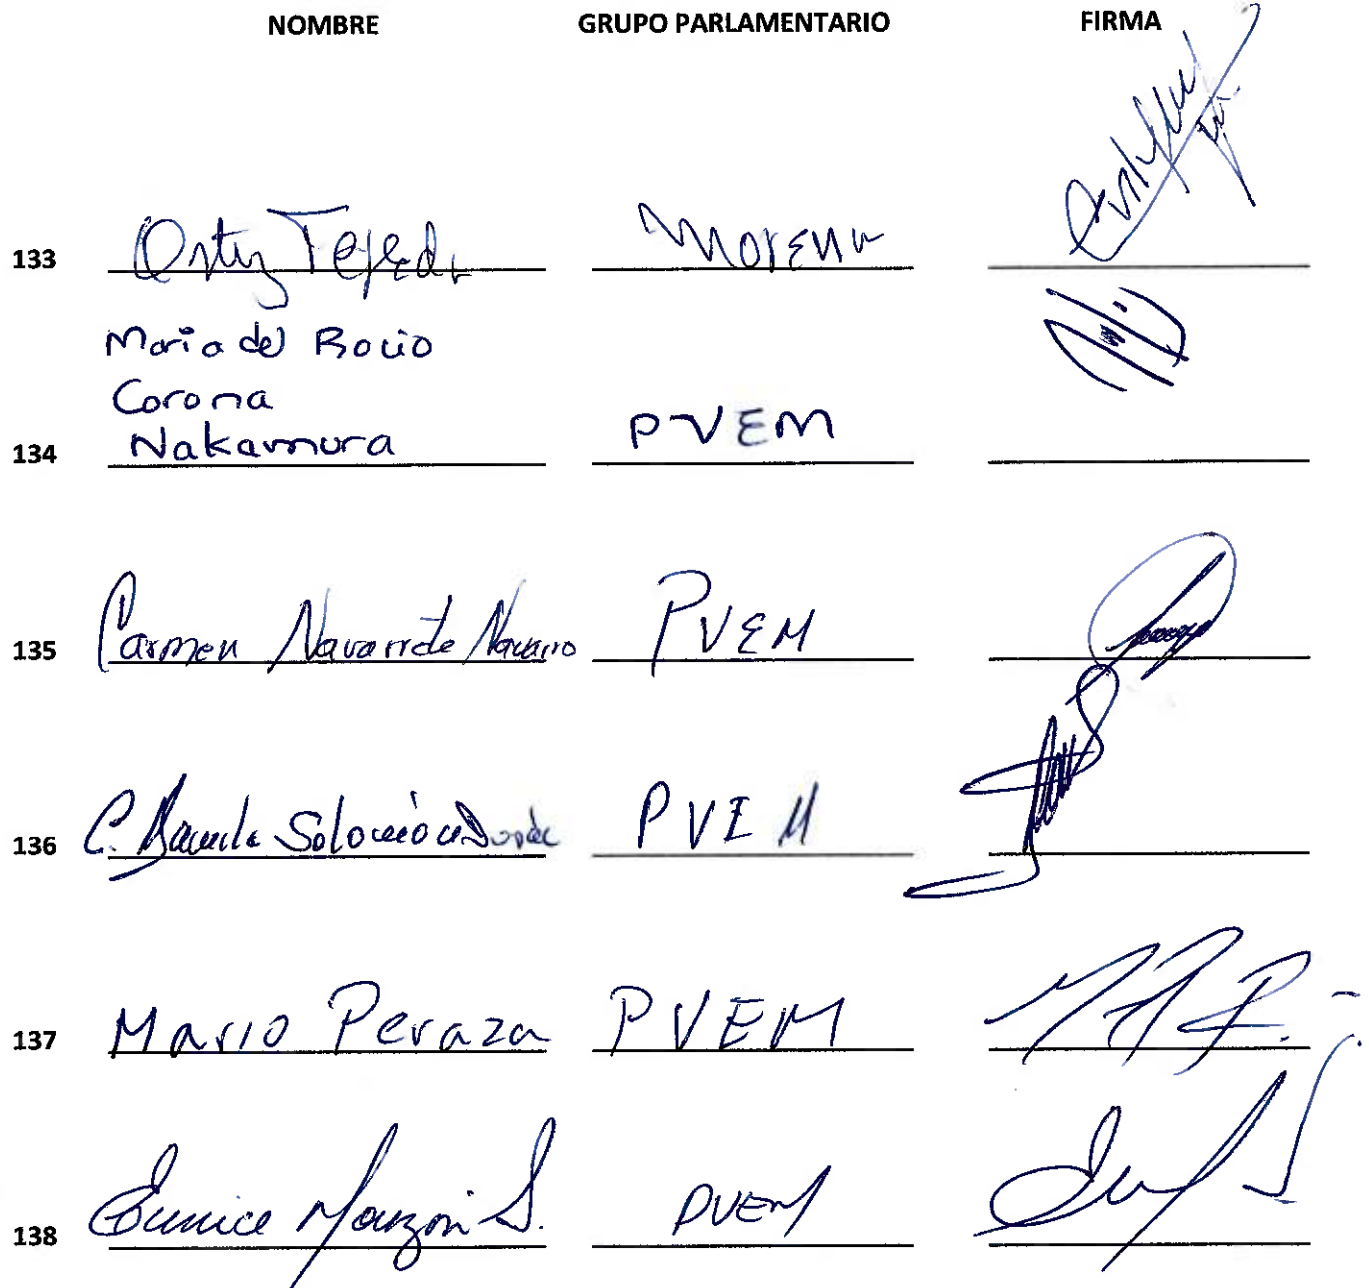 NOMBRE GRUPO PARLAMENTARIO FIRMA
133 Ortiz Tejeda Morena
Maria del Rocio
Corona
134 Nakamura PVEM
135 Carmen Navarrete Navarro PVEM
136 C. PVEM
137 Mario Peraza PVEM
138 Eunice Monzón S. PVEM